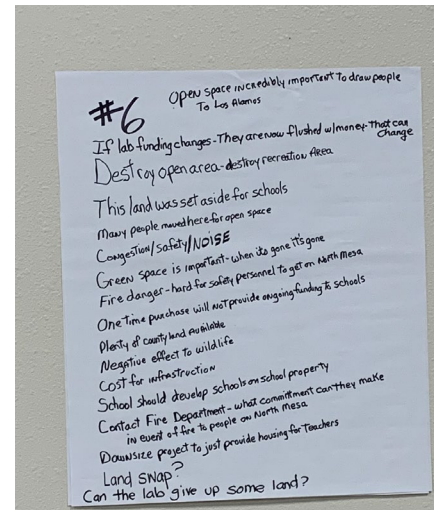 #6
Open space incredibly important to draw people
To Los Alamos
If lab funding changes - They are now flushed w/money - That can
Change
Destroy open area - destroy recreation Area
This land was set aside for schools
Many people moved here for open space
Congestion/safety/NOISE
Green space is important - when its gone it's gone
Fire danger - hard for safety personnel to get on North Mesa
One Time purchase will not provide ongoing funding to schools
Plenty of county land Available
Negative effect to wildlife
Cost for infrastruction
School should develop schools on school property
Contact Fire Department - what commitment can they make
in event of fire to people on North Mesa
Downsize project to just provide housing for Teachers
Land swap?
Can the lab give up some land?